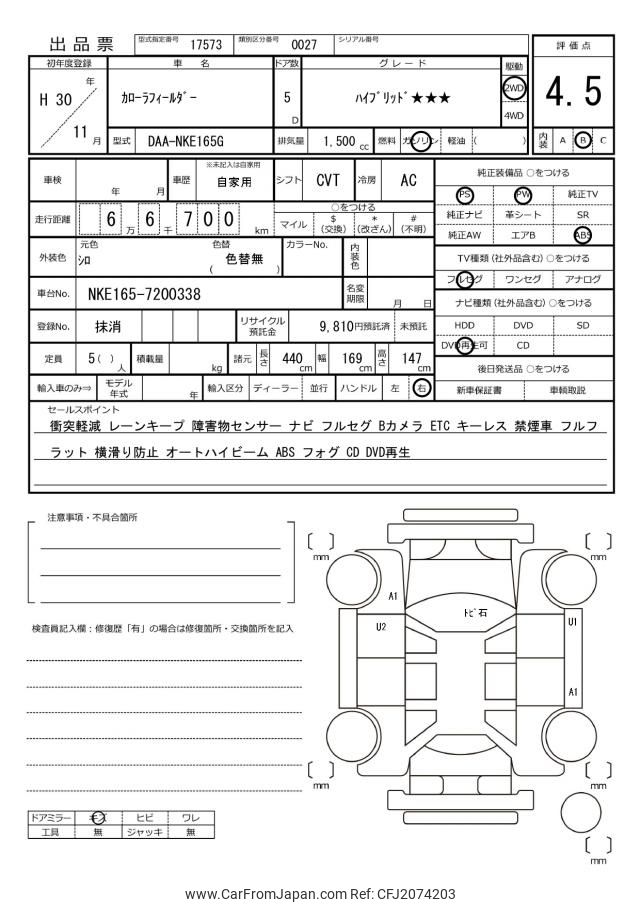 出品票 型式指定番号 17573 類別区分番号 0027 シリアル番号
評価点
4.5
内装 A B C
初年度登録 車名 ドア数 グレード 駆動
H 30 年 11 月
カローラフィールダー
5 D
ハイブリッド★★★
2WD
4WD
型式 DAA-NKE165G 排気量 1,500 cc 燃料 ガソリン 軽油 ( )
車検 年 月 車歴 ※未記入は自家用 自家用 シフト CVT 冷房 AC
走行距離 6 万 6 千 7 0 0 km
○をつける
マイル $(交換) *(改ざん) #(不明)
外装色 元色 シロ 色替 ( 色替無 ) カラーNo. 内装色
車台No. NKE165-7200338 名変期限 月 日
登録No. 抹消 リサイクル預託金 9,810円預託済 未預託
定員 5( )人 積載量 kg 諸元 長さ 440 cm 幅 169 cm 高さ 147 cm
輸入車のみ⇒ モデル年式 年 輸入区分 ディーラー 並行 ハンドル 左 右
純正装備品 ○をつける
PS PW 純正TV
純正ナビ 革シート SR
純正AW エアB ABS
TV種類(社外品含む) ○をつける
フルセグ ワンセグ アナログ
ナビ種類(社外品含む) ○をつける
HDD DVD SD
DVD再生可 CD
後日発送品 ○をつける
新車保証書 車輌取説
セールスポイント
衝突軽減 レーンキープ 障害物センサー ナビ フルセグ Bカメラ ETC キーレス 禁煙車 フルフ
ラット 横滑り防止 オートハイビーム ABS フォグ CD DVD再生
注意事項・不具合箇所
検査員記入欄:修復歴「有」の場合は修復箇所・交換箇所を記入
mm mm
A1
トビ石
U2
U1
A1
mm mm
mm
ドアミラー キズ ヒビ ワレ
工具 無 ジャッキ 無
www.CarFromJapan.com Ref: CFJ2074203